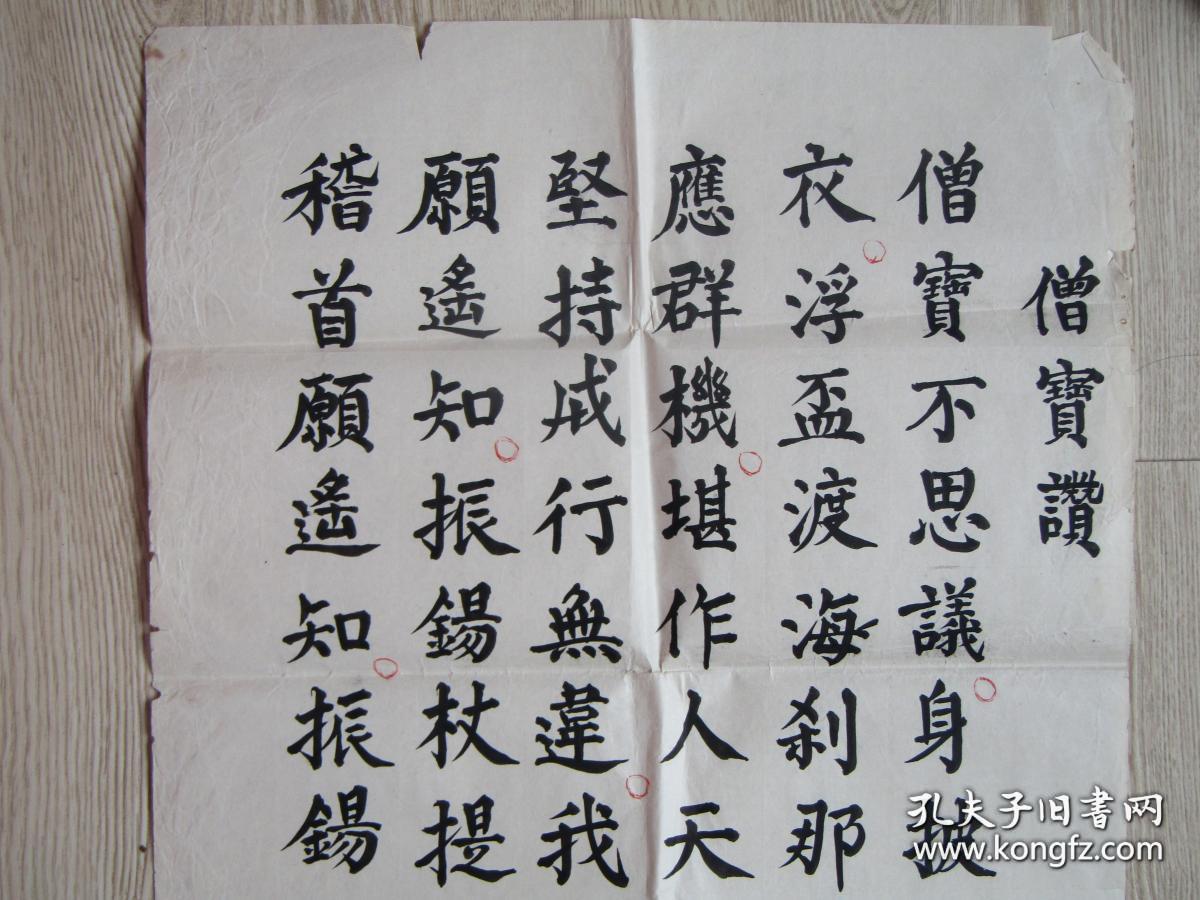 僧寶讚
僧寶不思議身披
衣浮盃渡海刹那
應群機堪作人天
堅持戒行無違我
願遙知振錫杖提
稽首願遙知振錫
孔夫子旧书网
www.kongfz.com